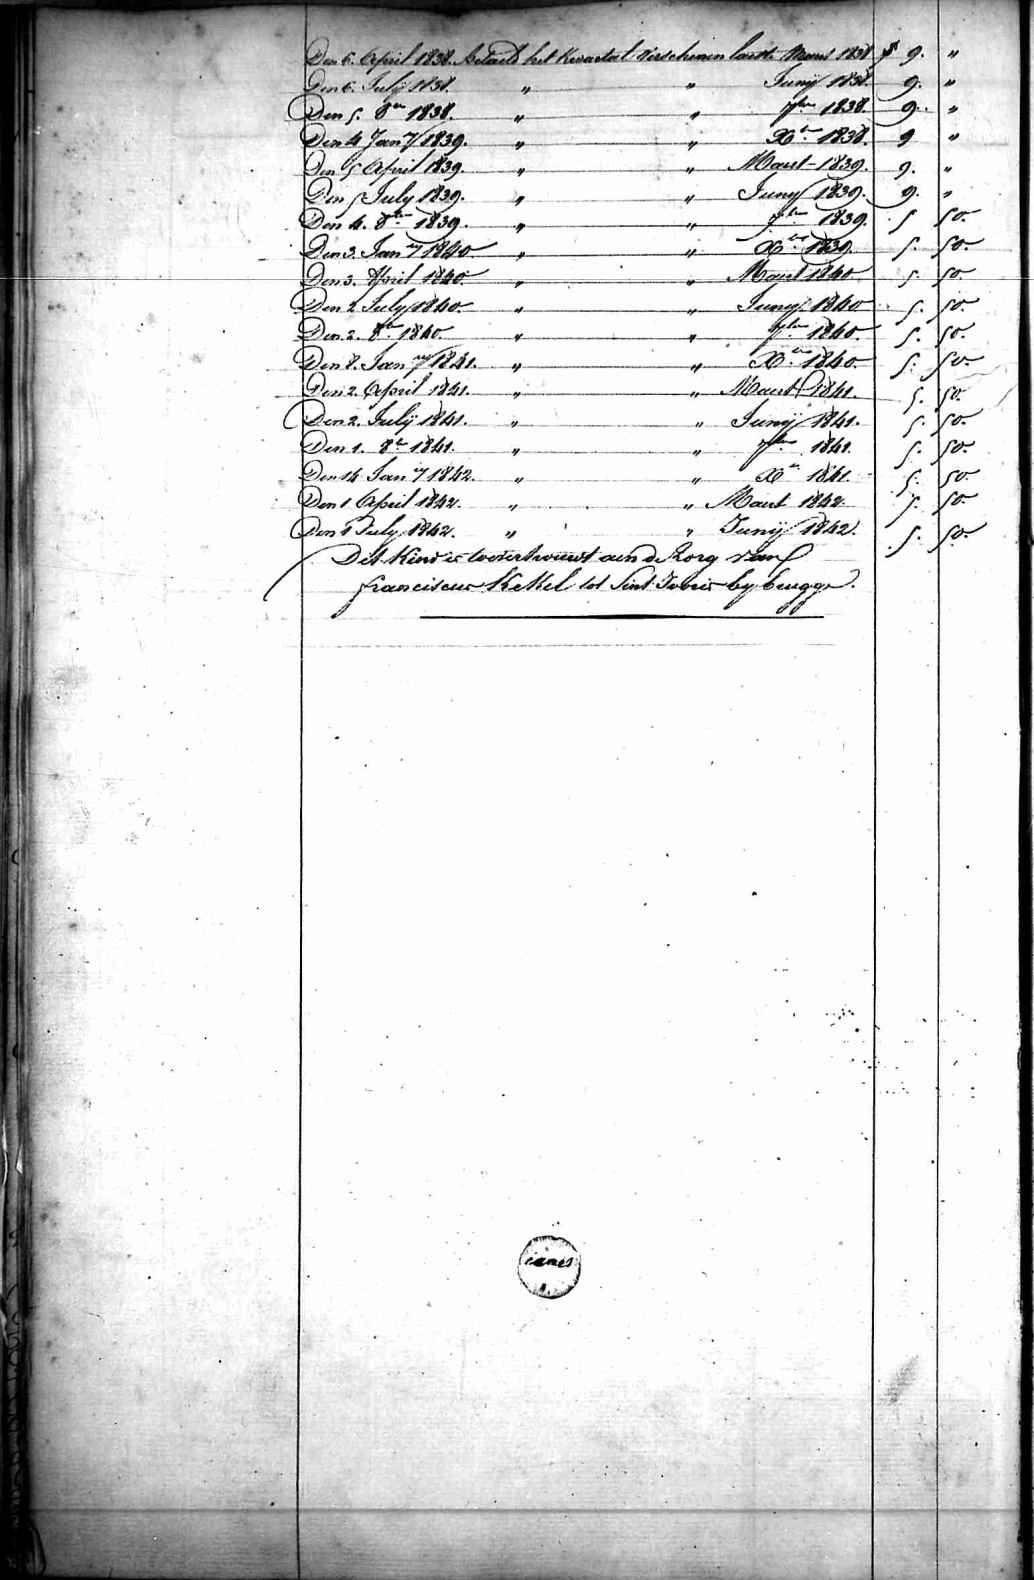 Den 6. April 1838. Betaeld het Kwartal verschenen laest. Maert 1838 f 9. "
Den 6. July 1838. " " Junij 1838. 9. "
Den 5. 8er 1838. " " 7ber 1838. 9. "
Den 4 Jany 1839. " " Xr 1838. 9 "
Den 5 April 1839. " " Maert 1839. 9. "
Den 5 July 1839. " " Juny 1839. 9. "
Den 4. 8ber 1839. " " 7ber 1839. 5 50.
Den 3. Jany 1840 " " Xber 1839. 5. 50.
Den 3. April 1840. " " Maert 1840 5 50.
Den 2 July 1840. " " Juny 1840 5. 50.
Den 2. 8er 1840. " " 7ber 1840. 5. 50.
Den 8. Jany 1841. " " Xber 1840. 5. 50.
Den 2. April 1841. " " Maert 1841. 5. 50.
Den 2. July 1841. " " Junij 1841. 5. 50.
Den 1. 8er 1841. " " 7ber 1841. 5. 50.
Den 14 Jany 1842. " " Xr 1841. 5. 50.
Den 1 April 1842. " " Maert 1842. 5. 50.
Den 1 July 1842. " " Junij 1842. 5. 50.
Dit Kind is toevertrouwt aen de Zorg van
franciscus Kekel tot Sint by brugge.